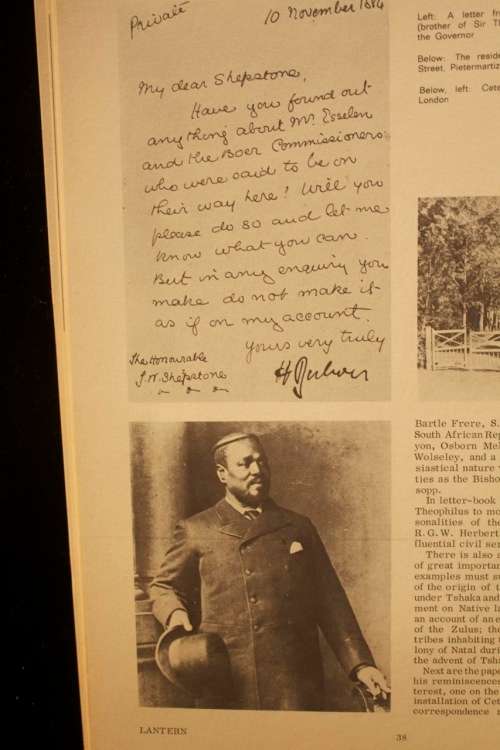 Private
10 November 1884
My dear Shepstone,
Have you found out
anything about Mr. Esselen
and the Boer Commissioners
who were said to be on
their way here? Will you
please do so and let me
know what you can.
But in any enquiry you
make do not make it
as if on my account.
Yours very truly
H Bulwer
The Honourable
J.W. Shepstone
Left: A letter fr
(brother of Sir Th
the Governor
Below: The reside
Street, Pietermaritz
Below, left: Cete
London
Bartle Frere, S.
South African Rep
yon, Osborn Mel
Wolseley, and a
siastical nature
ties as the Bisho
sopp.
In letter-book
Theophilus to mo
sonalities of the
R.G.W. Herbert
fluential civil ser
There is also a
of great importan
examples must su
of the origin of t
under Tshaka and
ment on Native la
an account of an e
of the Zulus; the
tribes inhabiting
lony of Natal duri
the advent of Tsh
Next are the pape
his reminiscences
terest, one on the
installation of Cet
correspondence
LANTERN
38